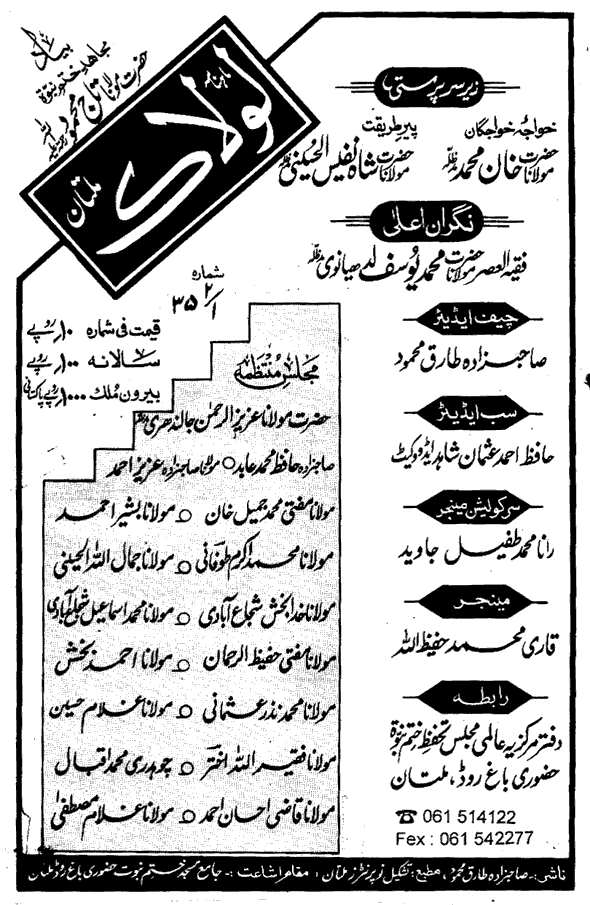 بیاد
مجاہد ختم نبوۃ
حضرت مولانا تاج محمود رحمۃ اللہ علیہ
ماہنامہ
لولاک
ملتان
زیر سرپرستی
خواجۂ خواجگان
حضرت مولانا خان محمد مدظلہ
پیر طریقت
حضرت مولانا شاہ نفیس الحسینی مدظلہ
نگران اعلیٰ
فقیہ العصر حضرت مولانا محمد یوسف لدھیانوی مدظلہ
شمارہ
۲/۱ ۳۵
قیمت فی شمارہ ۱۰ روپے
سالانہ ۱۰۰ روپے
بیرون ملک ۱۰۰۰ روپے پاکستانی
چیف ایڈیٹر
صاحبزادہ طارق محمود
سب ایڈیٹر
حافظ احمد عثمان شاہد ایڈووکیٹ
سرکولیشن مینجر
رانا محمد طفیل جاوید
مینجر
قاری محمد حفیظ اللہ
رابطہ
دفتر مرکزیہ عالمی مجلس تحفظ ختم نبوۃ
حضوری باغ روڈ، ملتان
☎ 061 514122
Fex : 061 542277
مجلس منتظمہ
حضرت مولانا عزیز الرحمٰن جالندھری مدظلہ
صاحبزادہ حافظ محمد عابد ○ مولانا صاحبزادہ عزیز احمد
مولانا مفتی محمد جمیل خان ○ مولانا بشیر احمد
مولانا محمد اکرم طوفانی ○ مولانا جمال اللہ الحسینی
مولانا خدا بخش شجاع آبادی ○ مولانا محمد اسماعیل شجاع آبادی
مولانا مفتی حفیظ الرحمان ○ مولانا احمد بخش
مولانا محمد نذر عثمانی ○ مولانا غلام حسین
مولانا فقیر اللہ اختر ○ چوہدری محمد اقبال
مولانا قاضی احسان احمد ○ مولانا غلام مصطفیٰ
ناشر :۔ صاحبزادہ طارق محمود، مطبع : تشکیل نو پرنٹرز ملتان : مقام اشاعت :۔ جامع مسجد ختم نبوت حضوری باغ روڈ ملتان